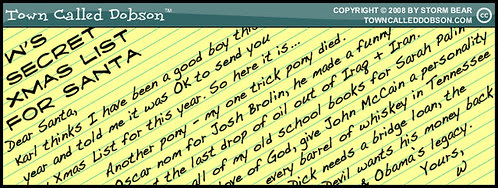 Town Called Dobson™
COPYRIGHT © 2008 BY STORM BEAR
TOWNCALLEDDOBSON.COM
cc
W'S
SECRET
XMAS LIST
FOR SANTA
Dear Santa,
Karl thinks I have been a good boy this
year and told me it was OK to send you
Xmas List for this year. So here it is...
Another pony - my one trick pony died.
Oscar nom for Josh Brolin, he made a funny
the last drop of oil out of Iraq + Iran.
all of my old school books for Sarah Palin
love of God, give John McCain a personality
every barrel of whiskey in Tennessee
Dick needs a bridge loan, the
Devil wants his money back
& Obama's legacy.
Yours,
W